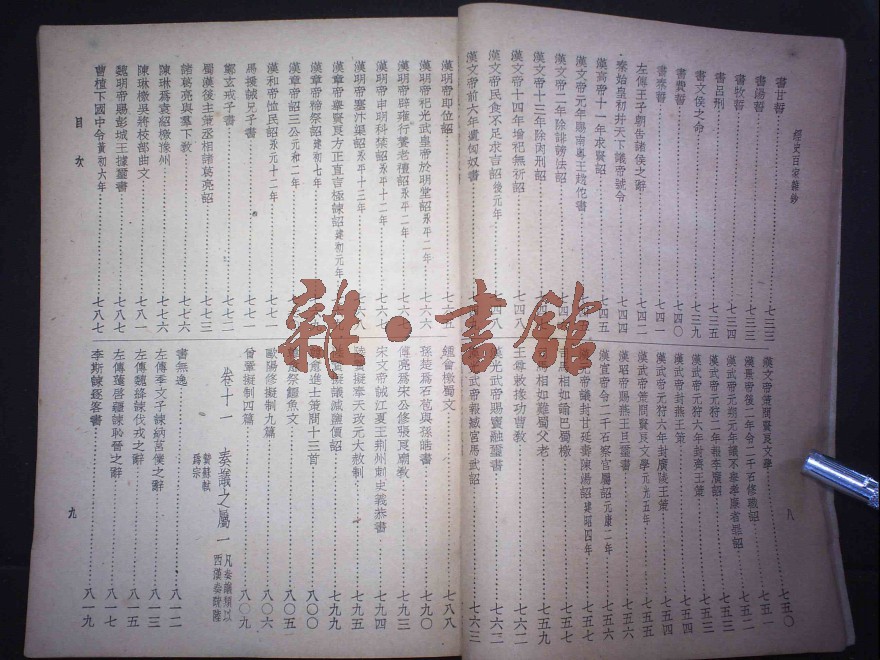 經史百家雜鈔
八
書甘誓……七三二
書湯誓……七三三
書牧誓……七三四
書呂刑……七三五
書文侯之命……七三九
書費誓……七四〇
書秦誓……七四一
左傳王子朝告諸侯之辭……七四二
秦始皇初幷天下議帝號令……七四四
漢高帝十一年求賢詔……七四五
漢文帝元年賜南粤王趙佗書
漢文帝二年除誹謗法詔
漢文帝十三年除肉刑詔
漢文帝十四年增祀無祈詔……七四八
漢文帝民食不足求言詔後元年
漢文帝前六年遺匈奴書
漢文帝策問賢良文學……七五〇
漢景帝後二年令二千石修職詔……七五一
漢武帝元朔元年議不舉孝廉者罪詔……七五二
漢武帝元狩二年報李廣詔……七五三
漢武帝元狩六年封齊王策……七五三
漢武帝封燕王策……七五四
漢武帝元狩六年封廣陵王策……七五五
漢武帝策問賢良文學元光五年……七五五
漢昭帝賜燕王旦璽書……七五六
漢宣帝令二千石察官屬詔元康二年
議封甘延壽陳湯詔建昭四年
司馬相如諭巴蜀檄……七五七
司馬相如難蜀父老……七五九
王尊敕掾功曹教……七六二
漢光武帝賜竇融璽書……七六二
武帝報臧宮馬武詔……七六三
漢明帝卽位詔
漢明帝祀光武皇帝於明堂詔永平二年……七六六
漢明帝辟雍行養老禮詔永平二年……七六七
漢明帝申明科禁詔永平十二年……七六七
漢明帝塞汴渠詔永平十三年……七六八
漢章帝舉賢良方正直言極諫詔建初元年
漢章帝禘祭詔建初七年
漢章帝詔三公元和二年
漢和帝恤民詔永元十二年……七七一
馬援誡兄子書……七七一
鄭玄戒子書……七七二
蜀漢後主策丞相諸葛亮詔……七七三
諸葛亮與羣下教……七七六
陳琳爲袁紹檄豫州……七七六
陳琳檄吳將校部曲文……七八一
魏明帝賜彭城王據璽書……七八七
曹植下國中令黃初六年……七八七
鍾會檄蜀文……七八八
孫楚爲石苞與孫皓書……七九〇
傅亮爲宋公修張良廟教……七九三
宋文帝誡江夏王荆州刺史義恭書……七九四
陸贄擬奉天改元大赦制……七九五
擬議減鹽價詔……七九九
韓愈進士策問十三首……八〇〇
祭鱷魚文……八〇五
歐陽修擬制九篇……八〇六
曾鞏擬制四篇……八〇九
卷十一 奏議之屬一
凡奏議類以
西漢奏疏陸
贄蘇軾
爲宗
書無逸……八一二
左傳季文子諫納莒僕之辭……八一三
左傳魏絳諫伐戎之辭……八一五
左傳薳啓疆諫恥晉之辭……八一七
李斯諫逐客書……八一九
目次
九
雜·書館